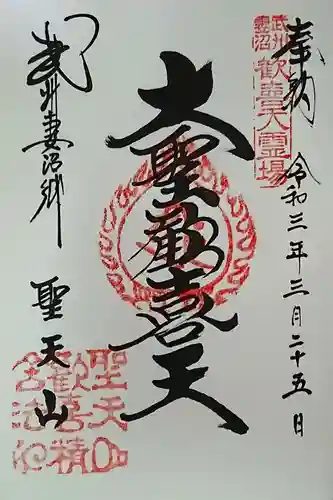 奉納
令和三年三月二十五日
武州
妻沼
歓喜天霊場
大聖歓喜天
武州妻沼郷
聖天山
聖天山
歓喜